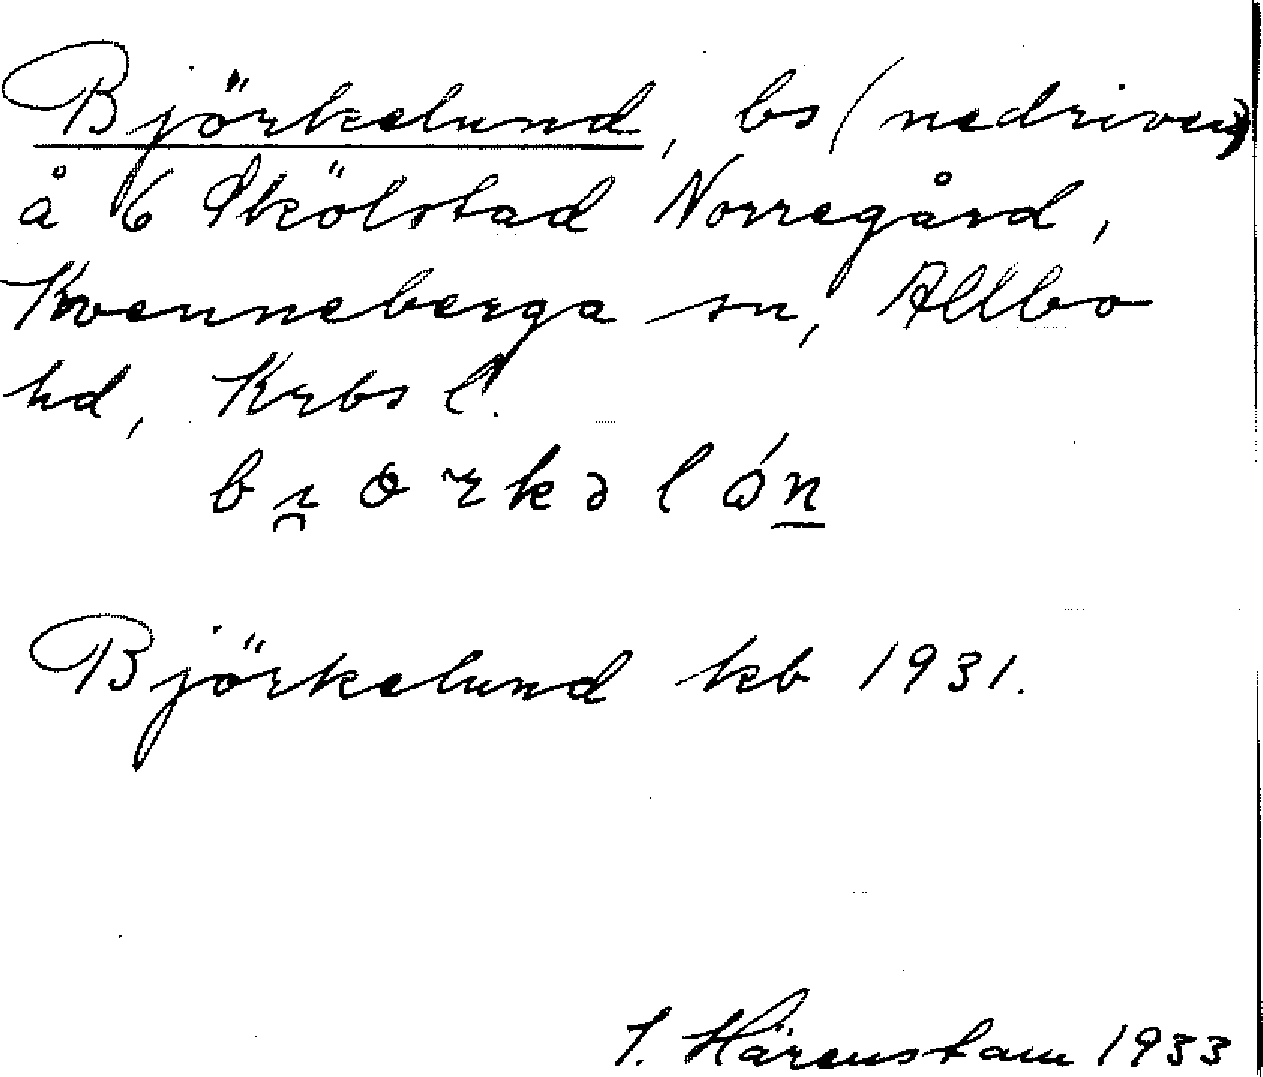 Björkelund, bs (nedriven)
å 6 Skölstad Norregård,
Kvenneberga sn, Allbo
hd, Krbs l.
Björkelund kb 1931.
I. Härenstam 1933